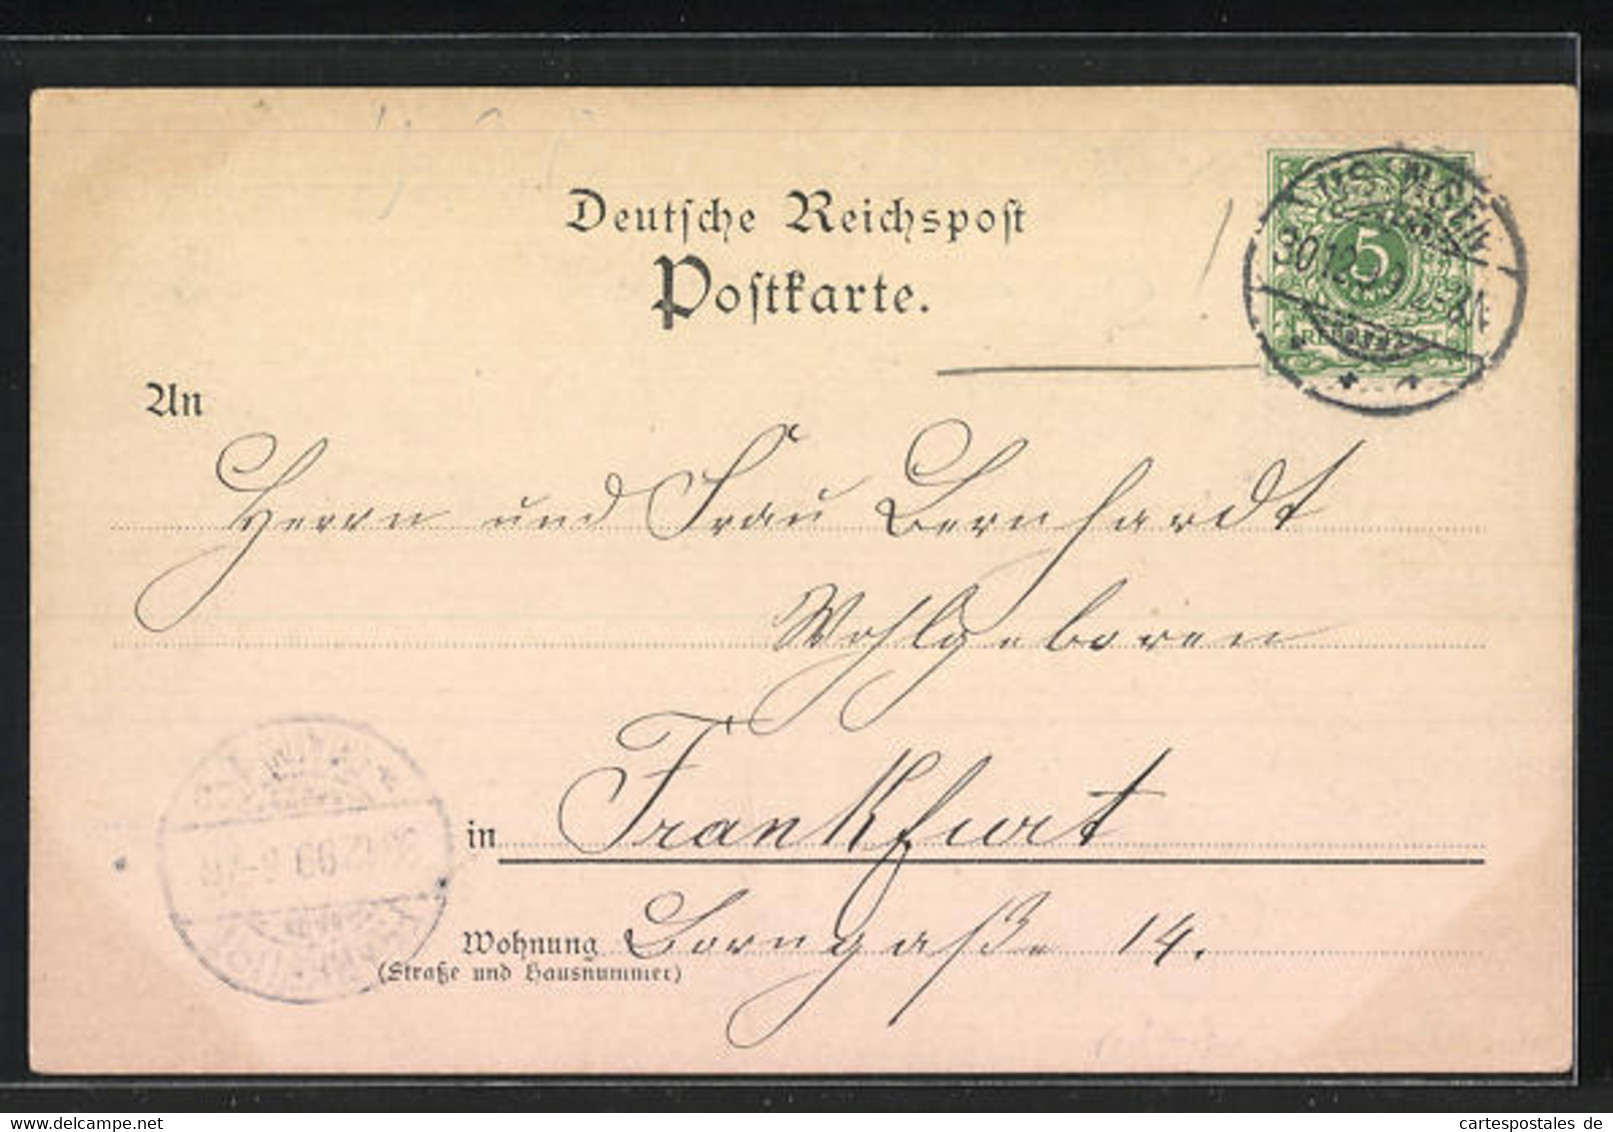 Deutsche Reichspost
Postkarte.
USINGEN
30.12.99
5
An
Herrn und Frau Bernhardt
Wohlgeboren
in Frankfurt
Wohnung Borngaße 14.
(Straße und Hausnummer)
30.12.99 6-7N
cartespostales de